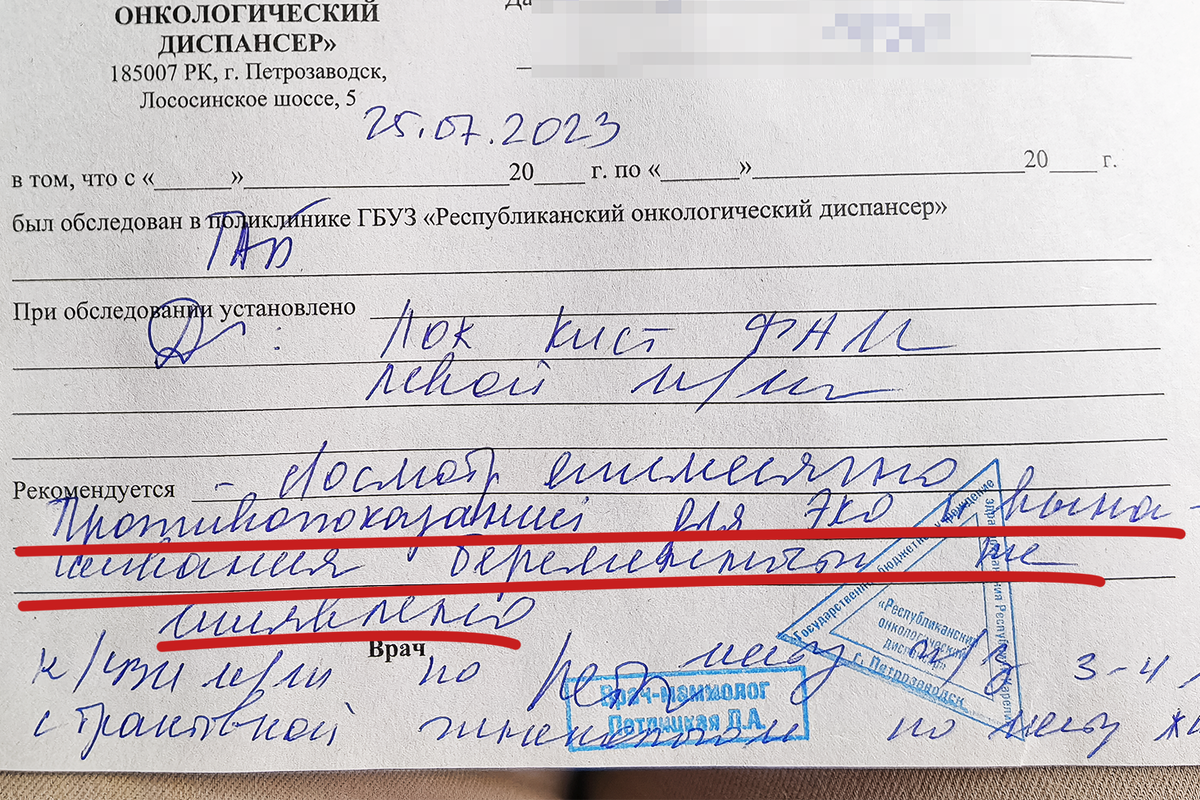 ОНКОЛОГИЧЕСКИЙ
ДИСПАНСЕР»
185007 РК, г. Петрозаводск,
Лососинское шоссе, 5
Да
25.07.2023
в том, что с «______»____________________20____ г. по «______»____________________20____ г.
был обследован в поликлинике ГБУЗ «Республиканский онкологический диспансер»
ТАБ
При обследовании установлено
Ds: Лок кист ФАМ
левой м/ж
Рекомендуется - осмотр ежемесячно
Противопоказаний для ЭКО вына-
шивания беременности не
выявлено
Врач
к/УЗИ м/ж по 3-4
с гинекологом по м/ж
Государственное бюджетное учреждение здравоохранения Республики Карелия
«Республиканский
онкологический
диспансер»
г. Петрозаводск
Врач-маммолог
Л.А.